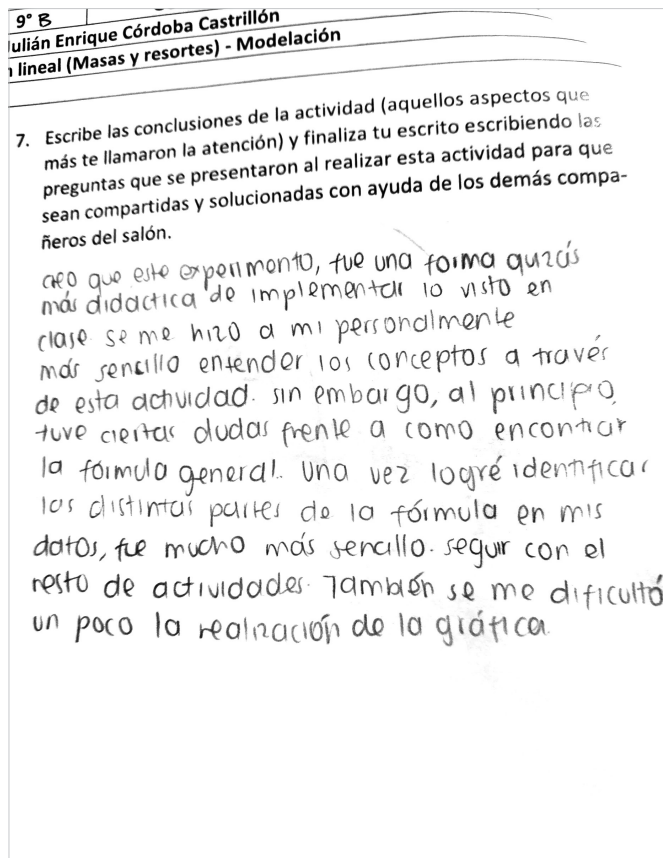 9° B
ulián Enrique Córdoba Castrillón
lineal (Masas y resortes) - Modelación
7. Escribe las conclusiones de la actividad (aquellos aspectos que
más te llamaron la atención) y finaliza tu escrito escribiendo las
preguntas que se presentaron al realizar esta actividad para que
sean compartidas y solucionadas con ayuda de los demás compa-
ñeros del salón.
creo que este experimento, fue una forma quizás
más didáctica de implementar lo visto en
clase se me hizo a mi personalmente
más sencillo entender los conceptos a través
de esta actividad. sin embargo, al principio
tuve ciertas dudas frente a como encontrar
la fórmula general. Una vez logré identificar
las distintas partes de la fórmula en mis
datos, fue mucho más sencillo. seguir con el
resto de actividades. También se me dificultó
un poco la realización de la gráfica